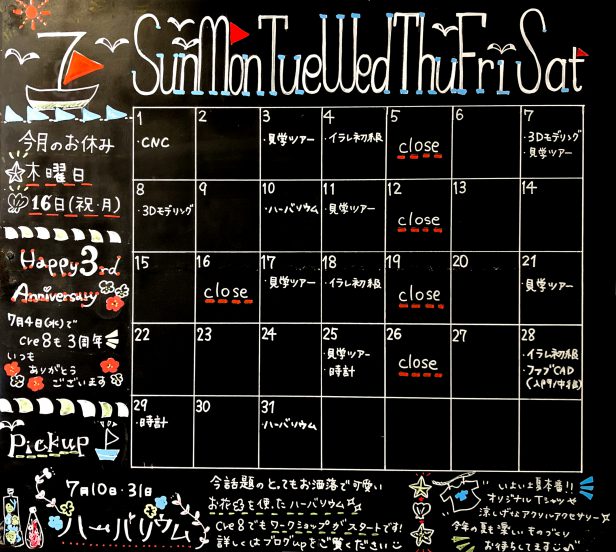 7
Sun Mon Tue Wed Thu Fri Sat
今月のお休み
木曜日
16日(祝・月)
Happy 3rd
Anniversary
7月4日(水)で
cre8も3周年
いつも
ありがとう
ございます
Pickup
1
・CNC
2
3
・見学ツアー
4
・イラレ初級
5
close
6
7
・3Dモデリング
・見学ツアー
8
・3Dモデリング
9
10
・ハーバリウム
11
・見学ツアー
12
close
13
14
15
16
close
17
・見学ツアー
18
・イラレ初級
19
close
20
21
・見学ツアー
22
23
24
25
・見学ツアー
・時計
26
close
27
28
・イラレ初級
・ファブCAD
(入門/中級)
29
・時計
30
31
・ハーバリウム
7月10日・31日
ハーバリウム
今話題のとってもお洒落で可愛い
お花を使ったハーバリウム
cre8でもワークショップがスタートです!
詳しくはブログupをご覧ください
いよいよ夏本番!!
オリジナルTシャツや
涼しげなアクリルアクセサリー
今年の夏も楽しいものづくり
お待ちしてます